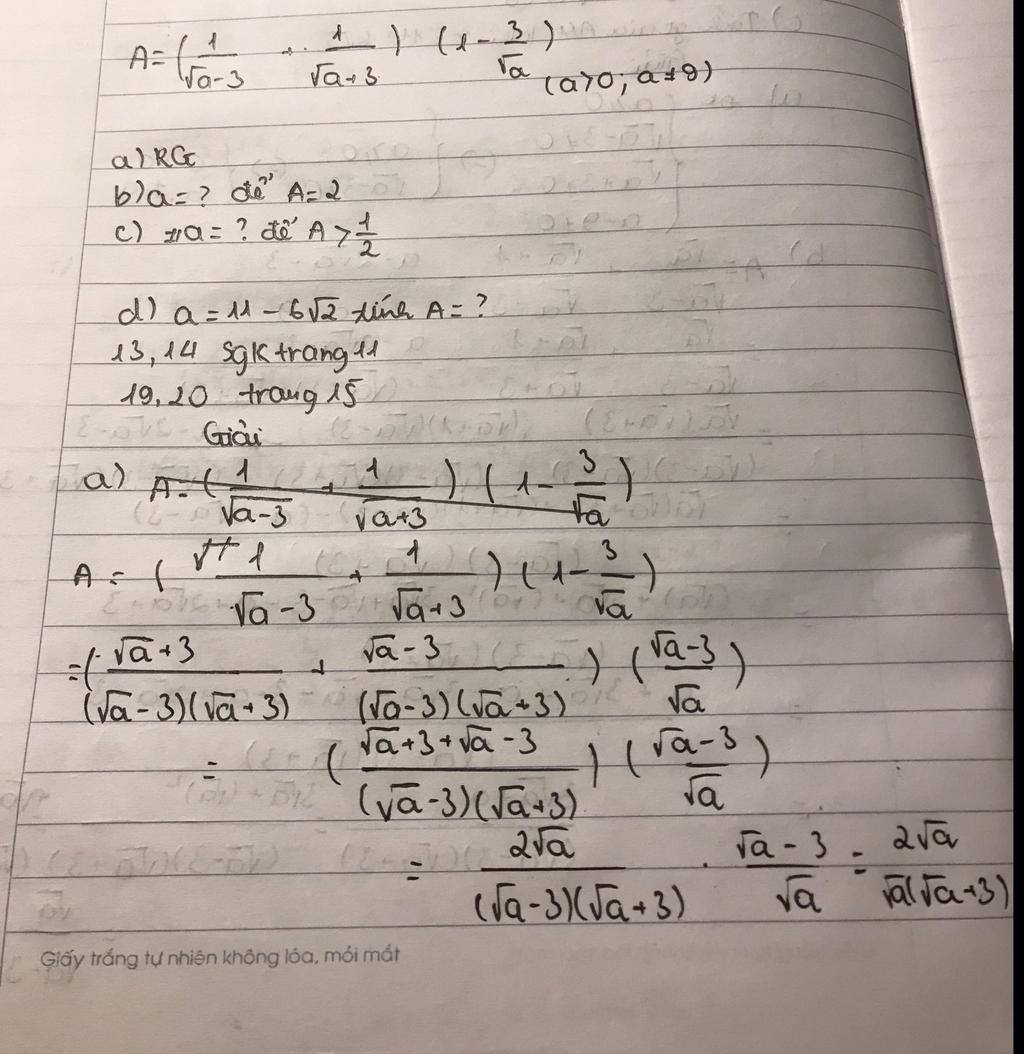 A = (1/(√a-3) + 1/(√a+3)) (1 - 3/√a)
(a>0; a≠9)
a) RG
b) a = ? để A = 2
c) a = ? để A > 1/2
d) a = 11 - 6√2 tính A = ?
13, 14 Sgk trang 11
19, 20 trang 15
Giải
a) A = (1/√a-3 + 1/√a+3) (1 - 3/√a)
A = (1/(√a-3) + 1/(√a+3)) (1 - 3/√a)
= ((√a+3)/((√a-3)(√a+3)) + (√a-3)/((√a-3)(√a+3))) ((√a-3)/√a)
= ((√a+3+√a-3)/((√a-3)(√a+3))) ((√a-3)/√a)
= 2√a/((√a-3)(√a+3)) . (√a-3)/√a = 2√a/(√a(√a+3))
Giấy trắng tự nhiên không lóa, mỏi mắt